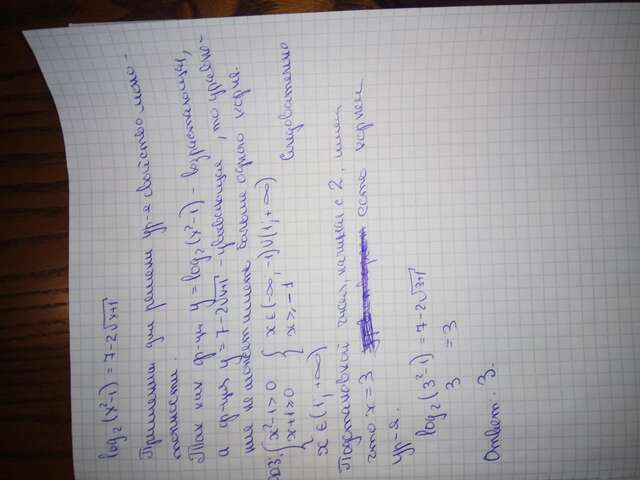 log₂(x²-1) = 7-2√x+1
Применим для решения ур-я свойство моно-
тонности.
Так как ф-ция y = log₂(x²-1) - возрастающая,
а ф-ция y = 7-2√x+1 - убывающая, то уравне-
ние не может иметь больше одного корня.
ОДЗ: { x²-1>0 { x ∈ (-∞, -1)∪(1, +∞)
{ x+1≥0 { x ≥ -1 Следовательно
x ∈ (1, +∞)
Подстановкой чисел, начиная с 2,
что x = 3 есть корнем
ур-я.
log₂(3²-1) = 7-2√3+1
3 = 3
Ответ: 3.